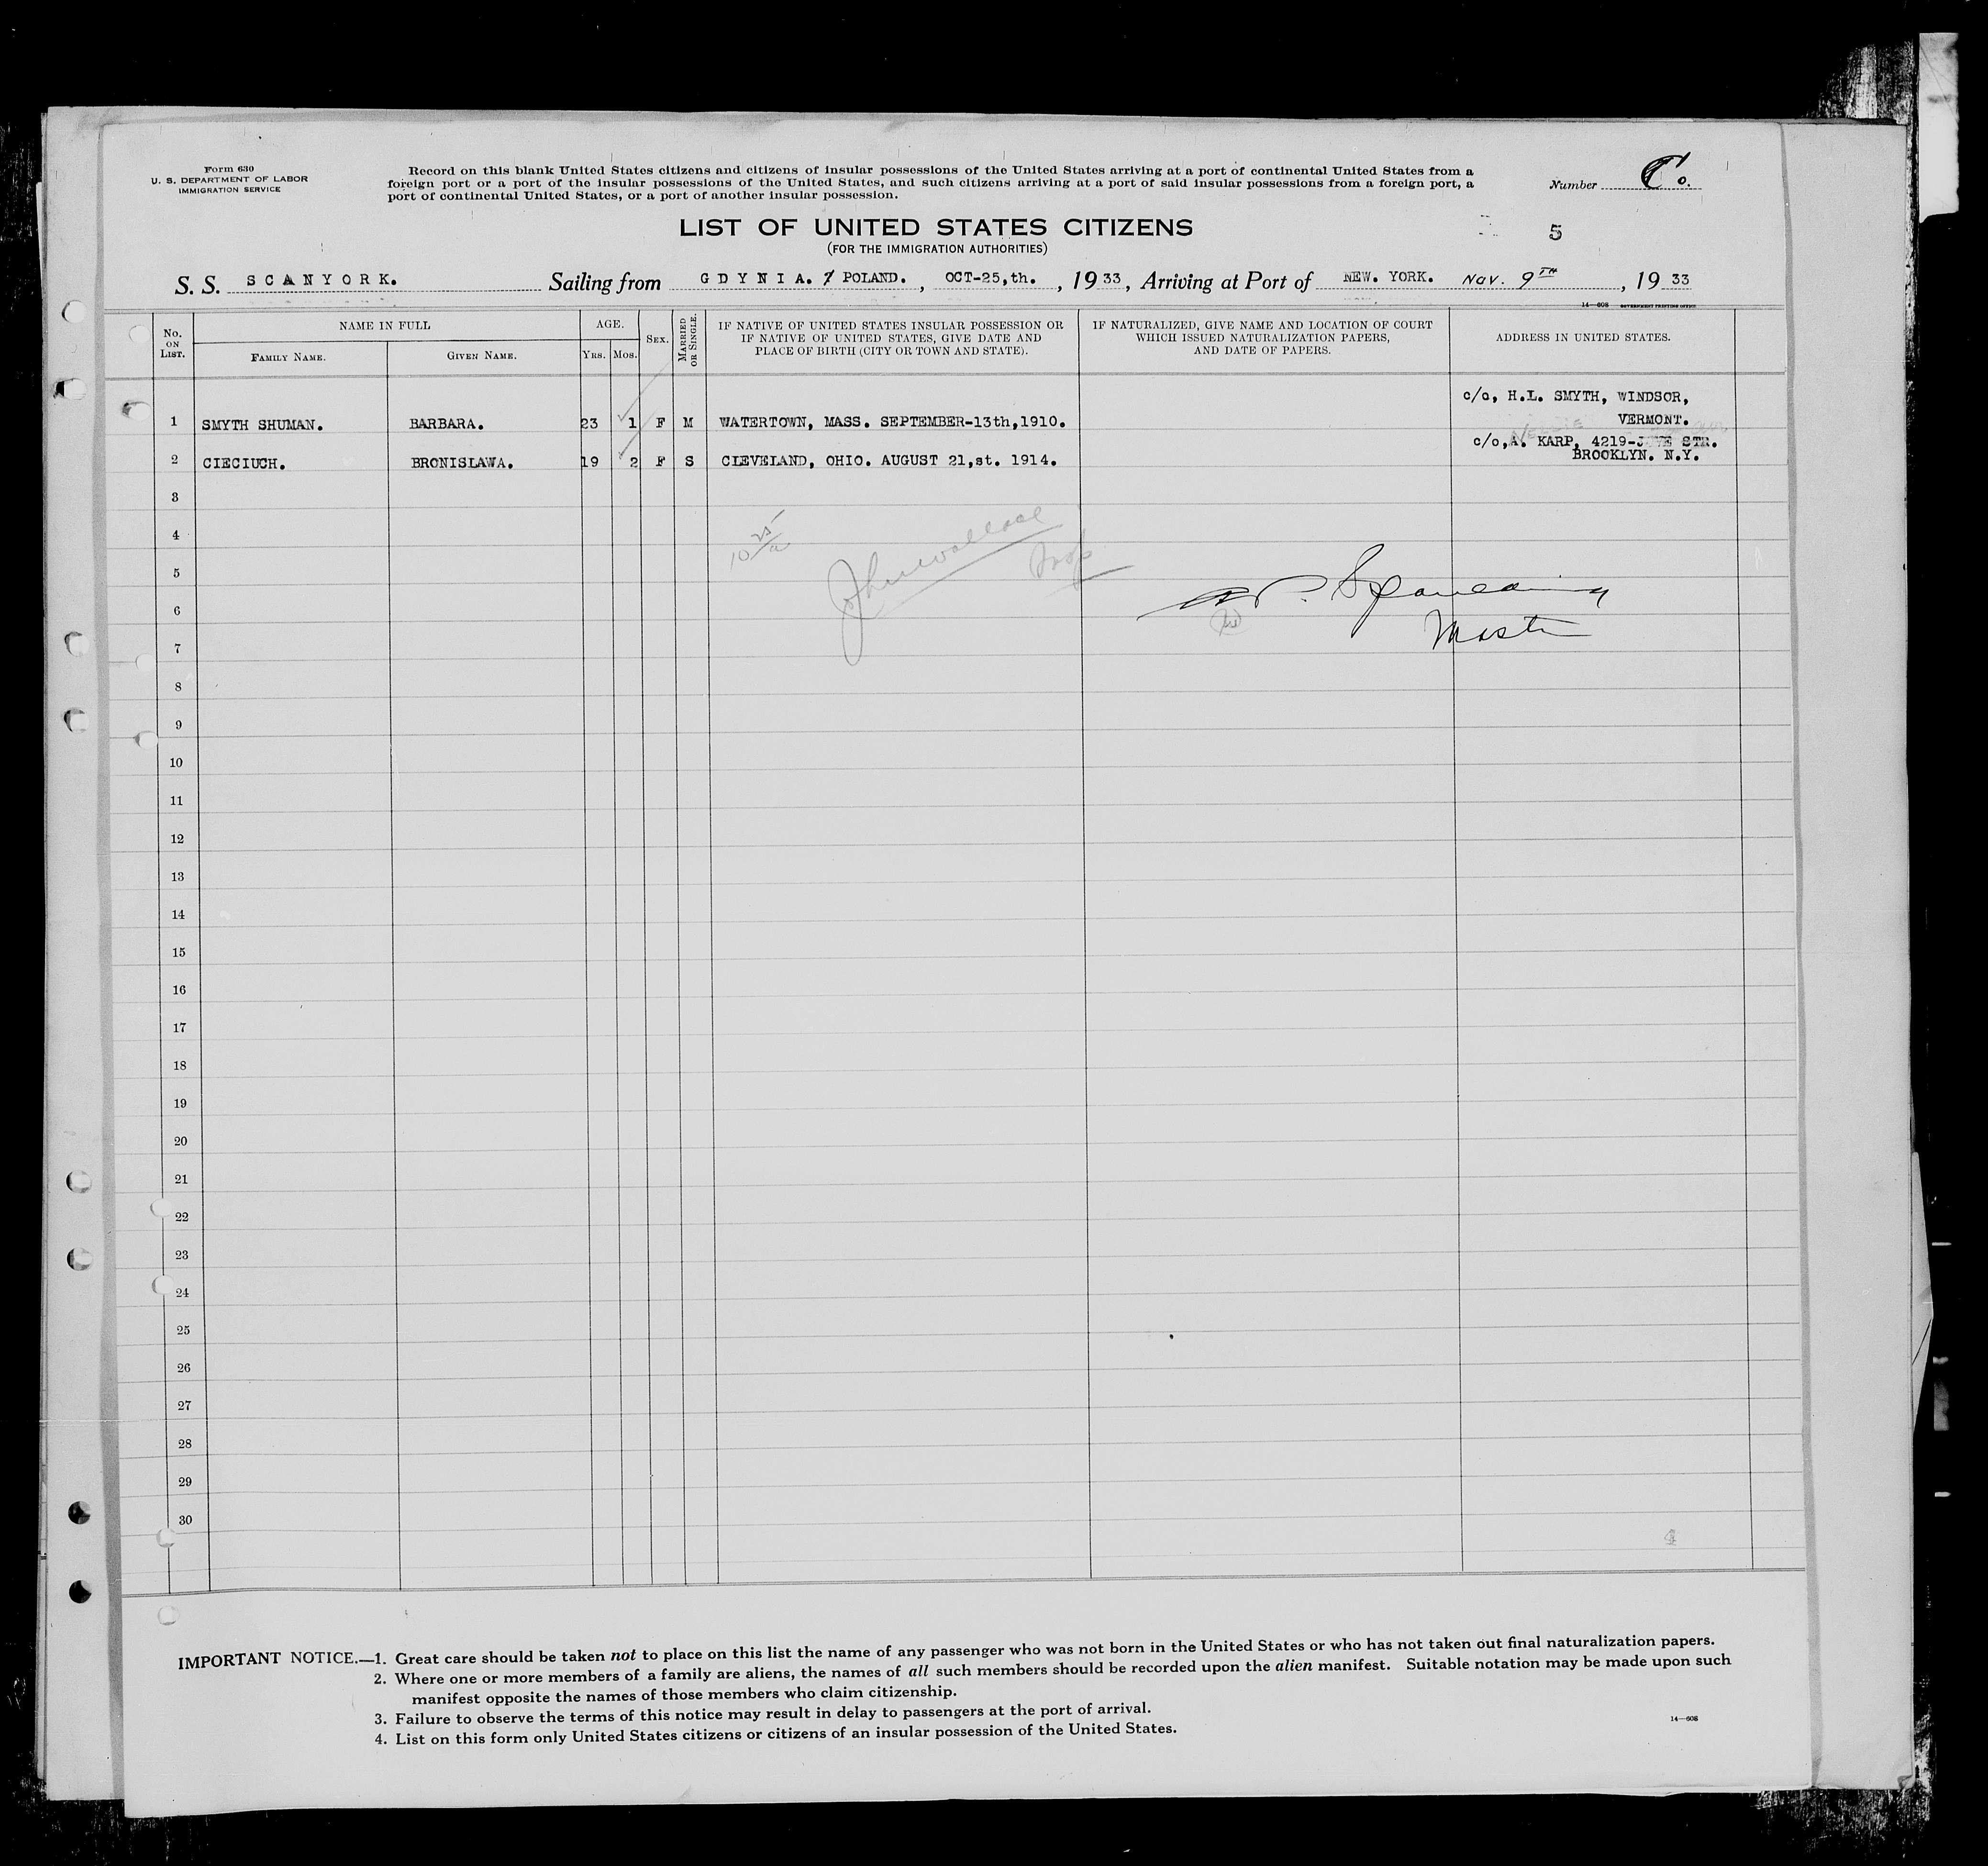 Form 630
U. S. DEPARTMENT OF LABOR
IMMIGRATION SERVICE
Record on this blank United States citizens and citizens of insular possessions of the United States arriving at a port of continental United States from a
foreign port or a port of the insular possessions of the United States, and such citizens arriving at a port of said insular possessions from a foreign port, a
port of continental United States, or a port of another insular possession.
Number
5
LIST OF UNITED STATES CITIZENS
(FOR THE IMMIGRATION AUTHORITIES)
S. S. SCANYORK. Sailing from GDYNIA. POLAND. , OCT-25,th. , 1933, Arriving at Port of NEW. YORK. Nov. 9TH , 1933
14—608 GOVERNMENT PRINTING OFFICE
No. ON LIST.
NAME IN FULL
FAMILY NAME.
GIVEN NAME.
AGE.
YRS. MOS.
SEX.
MARRIED OR SINGLE.
IF NATIVE OF UNITED STATES INSULAR POSSESSION OR
IF NATIVE OF UNITED STATES, GIVE DATE AND
PLACE OF BIRTH (CITY OR TOWN AND STATE).
IF NATURALIZED, GIVE NAME AND LOCATION OF COURT
WHICH ISSUED NATURALIZATION PAPERS,
AND DATE OF PAPERS.
ADDRESS IN UNITED STATES.
c/o, H.L. SMYTH, WINDSOR,
1 SMYTH SHUMAN. BARBARA. 23 1 F M WATERTOWN, MASS. SEPTEMBER-13th,1910. VERMONT.
c/o,A. KARP, 4219- STR.
2 CIECIUCH. BRONISLAWA. 19 2 F S CLEVELAND, OHIO. AUGUST 21,st. 1914. BROOKLYN. N.Y.
3
4
John Wallace
5
Spaulding
6
Master
7
8
9
10
11
12
13
14
15
16
17
18
19
20
21
22
23
24
25
26
27
28
29
30
IMPORTANT NOTICE.—1. Great care should be taken not to place on this list the name of any passenger who was not born in the United States or who has not taken out final naturalization papers.
2. Where one or more members of a family are aliens, the names of all such members should be recorded upon the alien manifest. Suitable notation may be made upon such
manifest opposite the names of those members who claim citizenship.
3. Failure to observe the terms of this notice may result in delay to passengers at the port of arrival.
4. List on this form only United States citizens or citizens of an insular possession of the United States.
14—608